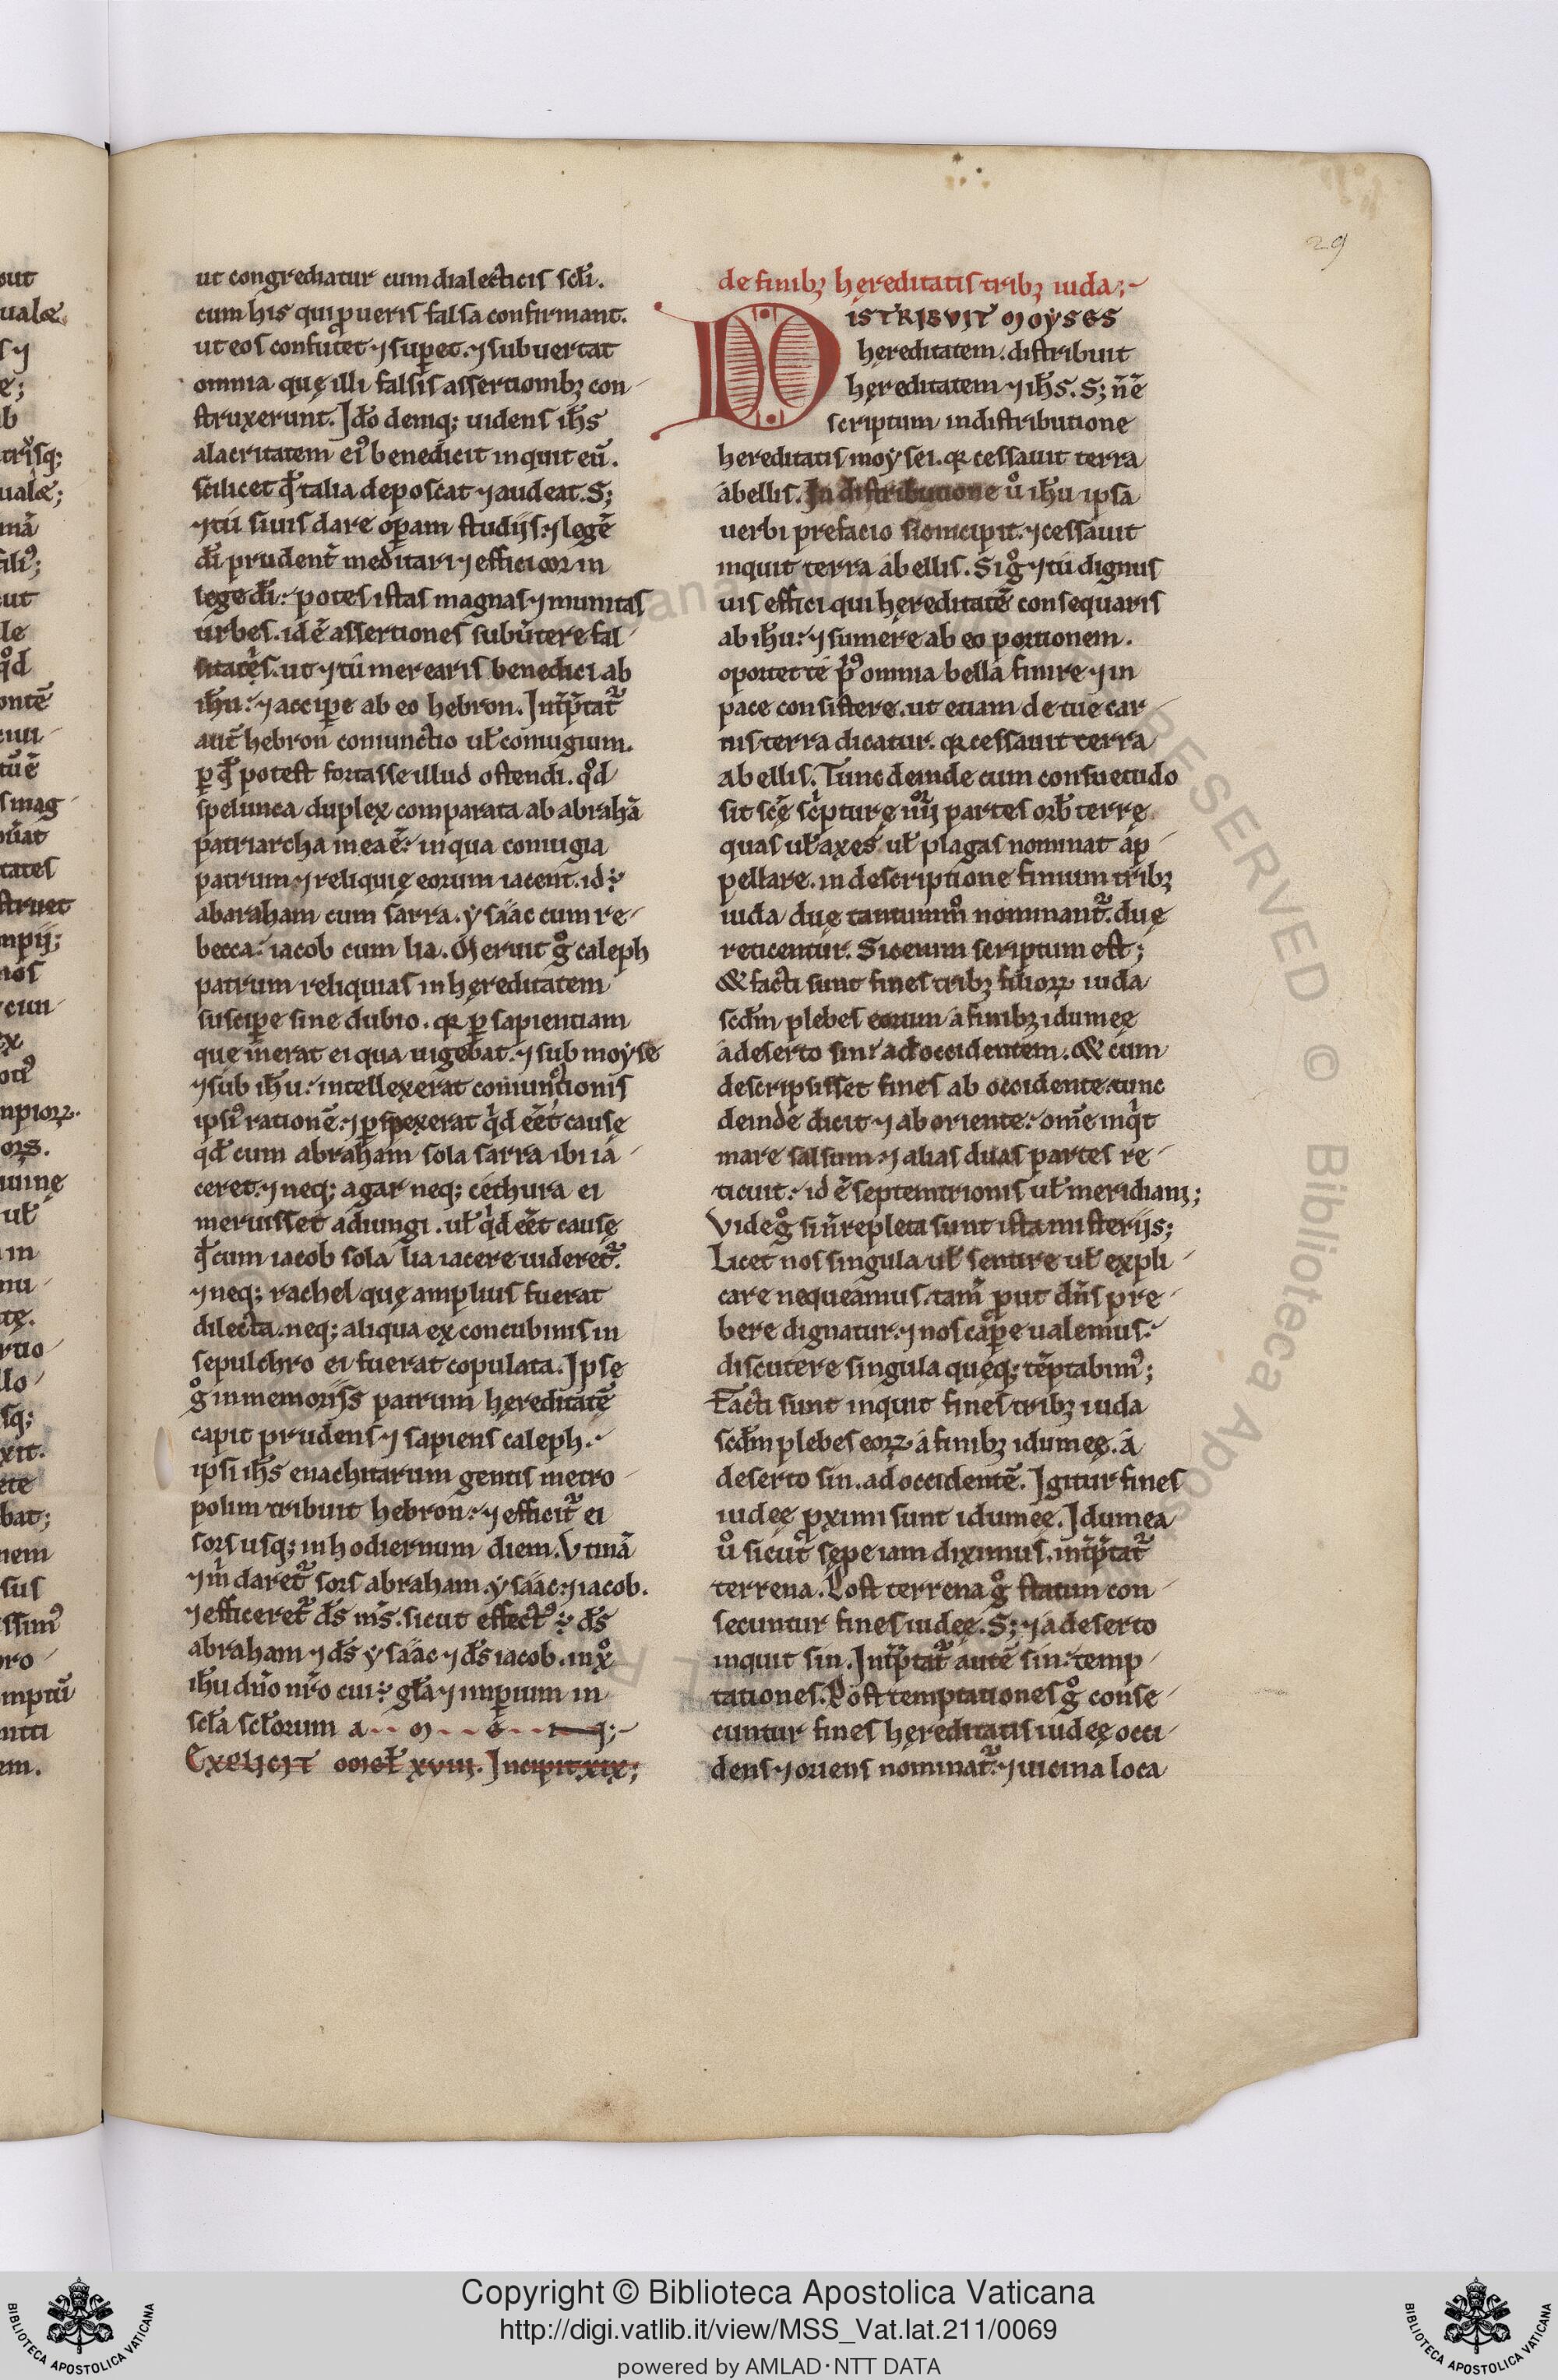 29
ut congrediatur cum dialecticis scłi.
cum his qui ꝓ ueris falsa confirmant.
ut eos confutet ⁊ suꝑet. ⁊ subuertat
omnia quę illi falsis assertionibꝫ con-
struxerunt. Ido deniq; uidens ih̄s
alacritatem eiꝰ benedicit inquit eū.
scilicet qđ talia deposcat ⁊ audeat. S;
⁊ tu si uis dare oꝑam studijs. ⁊ legē
di prudent̄ meditari ⁊ effici in
lege di: potes istas magnas ⁊ munitas
urbes. id ē assertiones subūtere fal-
ut ⁊ tu merearis benedici ab
ih̄u: ⁊ acciꝑe ab eo hebron. Int̄p̄tat᷑
aut̄ hebron coniunctio uł coniugium.
ꝑ qđ potest fortasse illud ostendi. qͦd
spelunca duplex comparata ab abrahā
patriarcha in ea ē: in qua coniugia
patrum ⁊ reliquię eorum iacent. id ÷
abaraham cum sarra. ẏsaac cum re-
becca: iacob cum lia. Meruit gͦ caleph
patrum reliquias in hęreditatem
susciꝑe sine dubio. qꝛ ꝑ sapientiam
quę inerat ei qua uigebat. ⁊ sub moẏse
⁊ sub ih̄u: intellexerat coniunctionis
ipsiꝰ rationē: ⁊ ꝑspexerat qͥd eēt causę
qđ cum abraham sola sarra ibi ia-
ceret. ⁊ neq; agar neq; cethura ei
meruisset adiungi. uł qͥd eēt causę
qđ cum iacob sola lia iacere uideret᷑.
⁊ neq; rachel quę amplius fuerat
dilecta. neq; aliqua ex concubinis in
sepulchro ei fuerat copulata. Ipse
gͦ in memorijs patrum hęreditatē
capit prudens ⁊ sapiens caleph.
ipsi ih̄s enachitarum gentis metro-
polim tribuit hebron: ⁊ efficit᷑ ei
sors usq; in hodiernum diem. Utinā
⁊ m̄ daret᷑ sors abraham. ẏsaac. ⁊ iacob.
⁊ efficeret᷑ d̄s m̄s. sicut effectꝰ ÷ d̄s
abraham ⁊ d̄s ẏsaac ⁊ d̄s iacob. in xͦ
ih̄u dn̄o nr̄o cui ÷ gła ⁊ imꝑium in
scła scłorum a - - m - - e - - n;
Explicit omeł xviii. Incipit xix;
de finibꝫ hęreditatis tribꝫ iuda;
DISTRIBVIT MOYSES
hereditatem. distribuit
hęreditatem ⁊ ih̄s. S; n̄ ē
scriptum in distributione
hereditatis moẏsei. qꝛ cessauit terra
a bellis. In distributione uͦ ih̄u ipsa
uerbi prefacio sic incipit. ⁊ cessauit
inquit terra a bellis. Si gͦ ⁊ tu dignus
uis effici qui hęreditatē consequaris
ab ih̄u: ⁊ sumere ab eo portionem.
oportet te pͥꝰ omnia bella finire ⁊ in
pace consistere. ut etiam de tue car-
nis terra dicatur. qꝛ cessauit terra
a bellis. Tunc deinde cum consuetudo
sit scē scͥpturę iiiiͦʳ partes orƀ terrę
quas uł axes uł plagas nominat ap-
pellare. in descriptione finium tribꝫ
iuda duę tantummͦ nominant᷑. duę
reticentur. Sic enim scriptum est;
& facti sunt fines tribꝫ filioꝝ iuda
scd̄m plebes eorum a finibꝫ idumeę
a deserto sin ad occidentem. & cum
descripsisset fines ab occidente. tunc
deinde dicit ⁊ ab oriente: om̄e inqͥt
mare salsum. ⁊ alias duas partes re-
ticuit: id ē septemtrionis uł meridiani;
Vide gͦ si n̄ repleta sunt ista misterijs;
Licet nos singula uł sentire uł expli-
care nequeamus. tam̄ ꝓut dn̄s pre-
bere dignatur. ⁊ nos caꝑe ualemus.
discutere singula queq; tēptabimꝰ;
Facti sunt inquit fines tribꝫ iuda
scd̄m plebes eoꝝ a finibꝫ idumeę. a
deserto sin. ad occidentē. Igitur fines
iudeę ꝓximi sunt idumeę. Idumea
uͦ sicut sępe iam diximus. int̄p̄tat᷑
terrena. Post terrena gͦ statim con-
secuntur fines iudeę. S; ⁊ a deserto
inquit sin. Int̄p̄tat᷑ autē sin: temp-
tationes. Post temptationes gͦ conse-
cuntur fines hęreditatis iudeę occi-
dens ⁊ oriens nominat᷑. ⁊ uicina loca
Copyright © Biblioteca Apostolica Vaticana
http://digi.vatlib.it/view/MSS_Vat.lat.211/0069
powered by AMLAD·NTT DATA
BIBLIOTECA APOSTOLICA VATICANA
BIBLIOTECA APOSTOLICA VATICANA